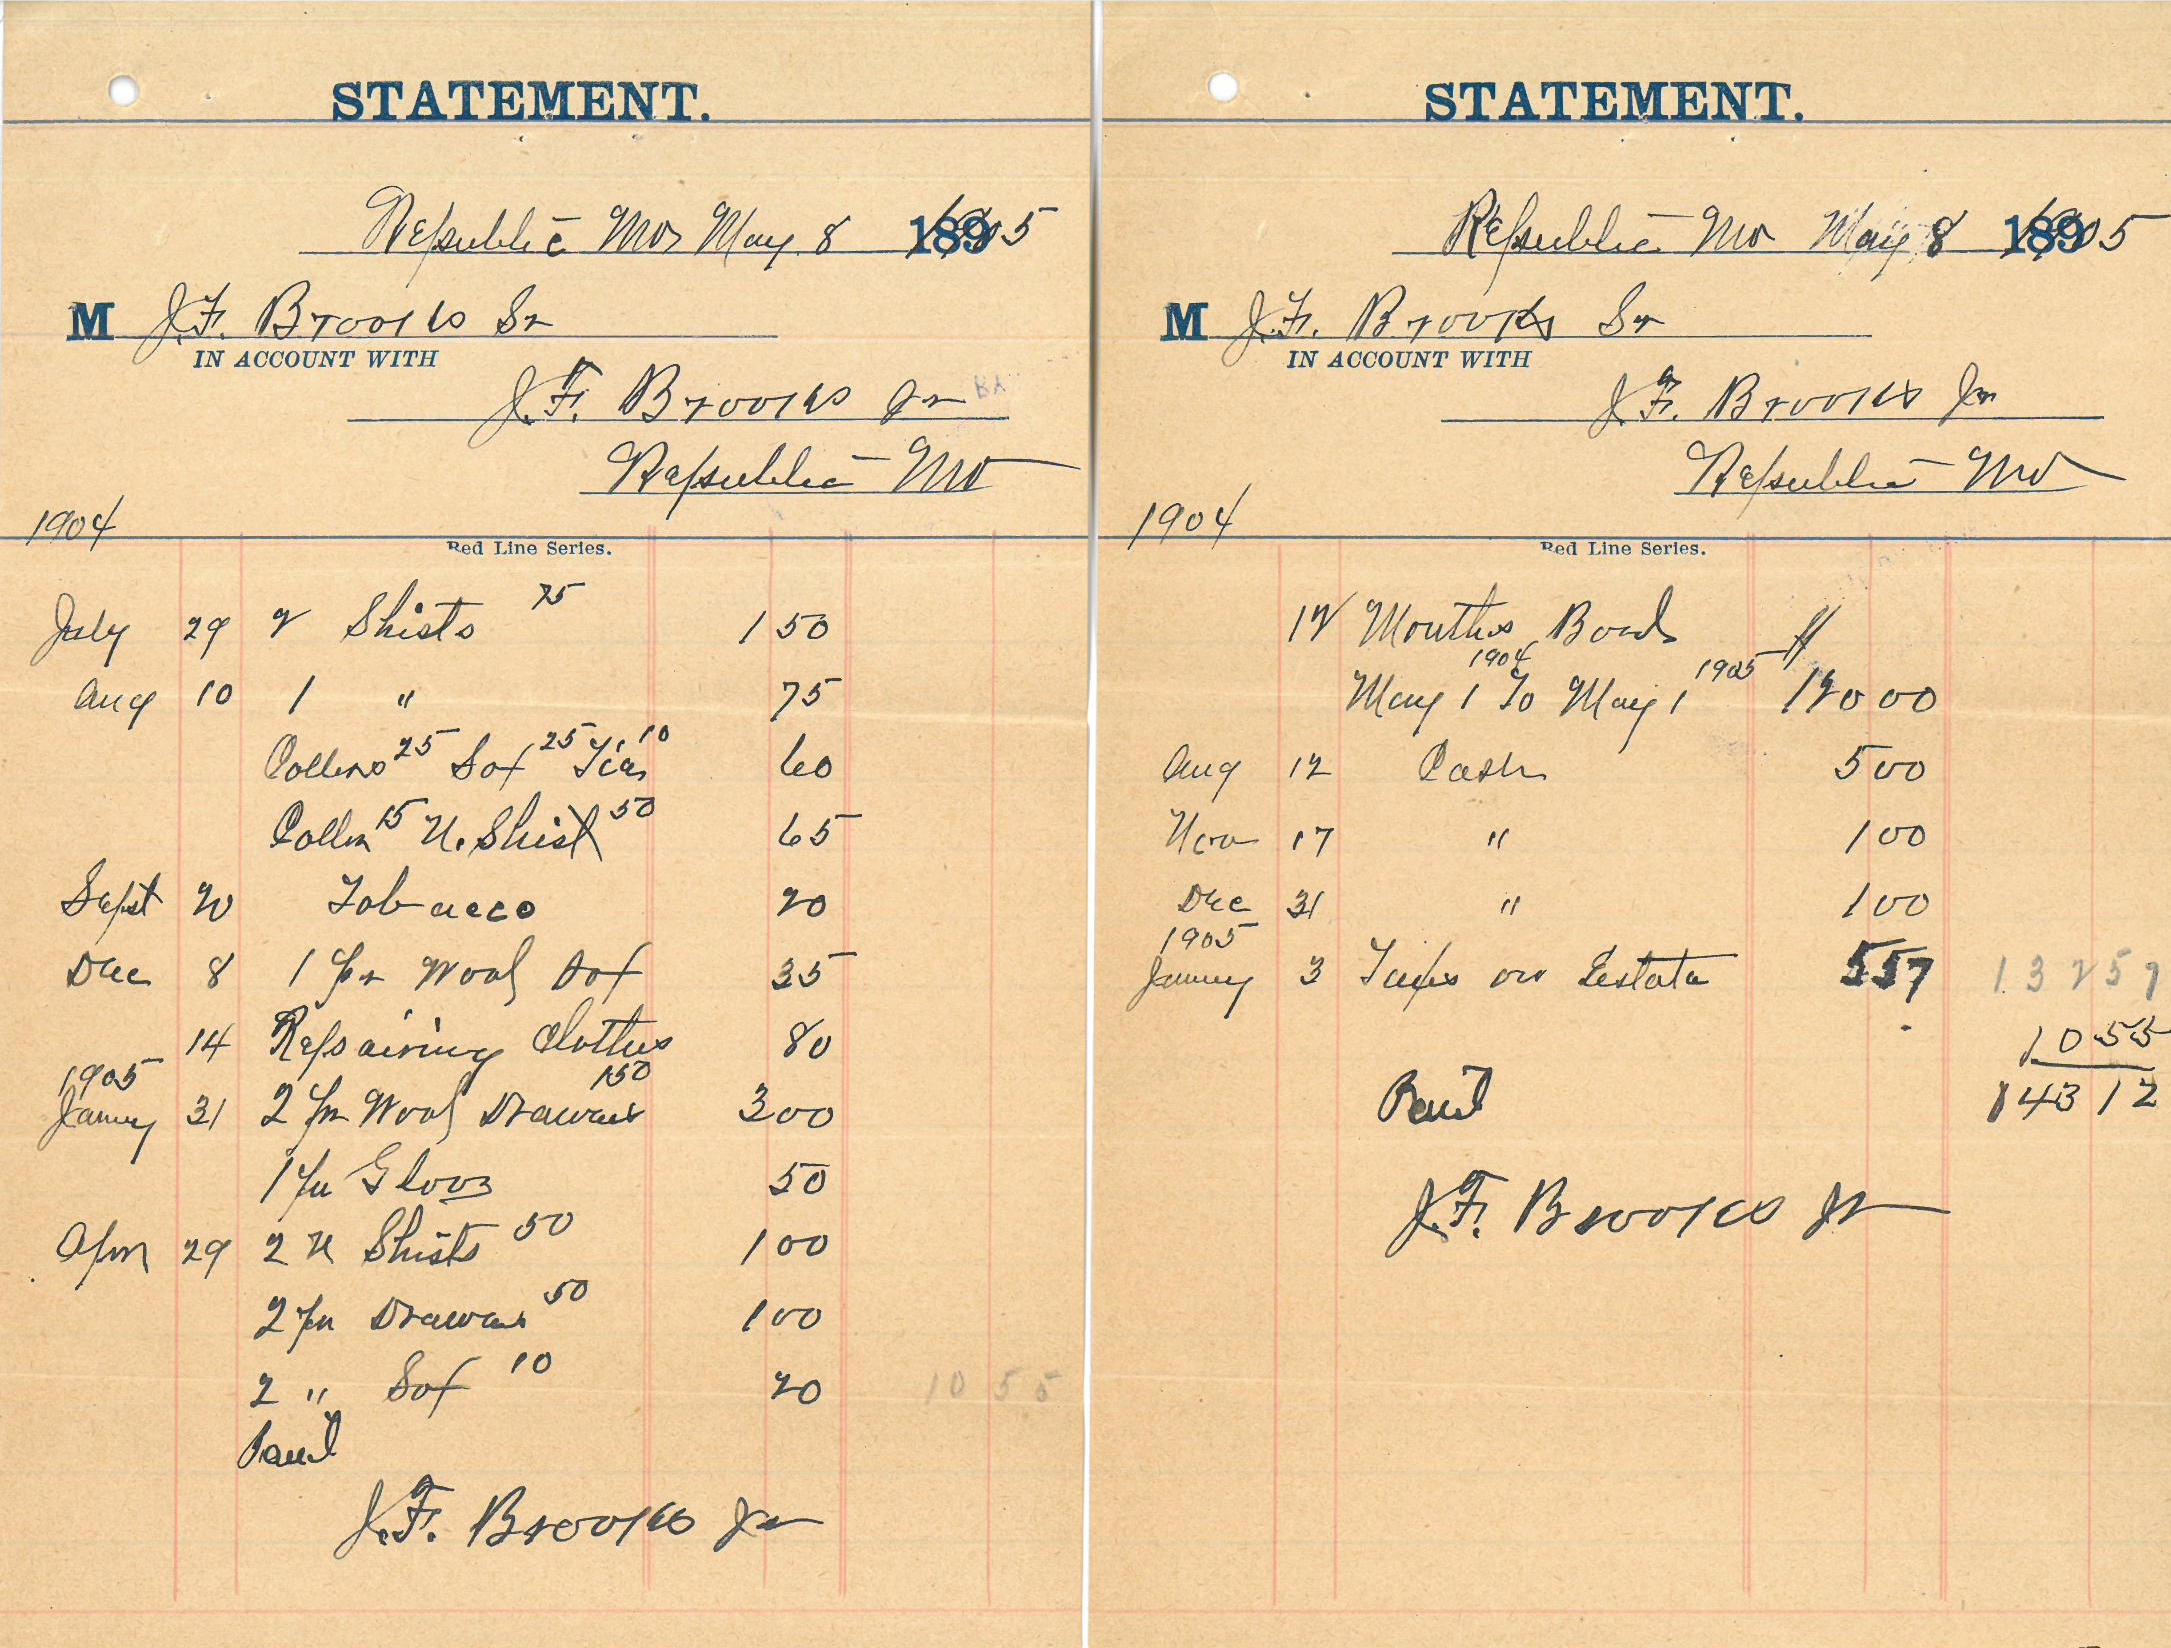 STATEMENT.
Republic Mo, May 8 1905
M J.F. Brooks Sr
IN ACCOUNT WITH
J.F. Brooks Jr
Republic Mo
1904
Red Line Series.
July 29 2 Shirts 75 1 50
Aug 10 1 " 75
Collers 25 Sox 25 Ties 10 60
Coller 15 U. Shirt 50 65
Sept 20 Tobacco 20
Dec 8 1 pr Wool Sox 35
14 Repairing Clothes 80
1905
Janury 31 2 pr Wool Drawers 150 3 00
1 pr Glovs 50
Apr 29 2 U Shirts 50 1 00
2 pr Drawers 50 1 00
2 " Sox 10 20 10 55
Paid
J.F. Brooks Jr
STATEMENT.
Republic Mo May 8 1905
M J.F. Brooks Sr
IN ACCOUNT WITH
J.F. Brooks Jr
Republic Mo
1904
Red Line Series.
12 Months Bord
May 1 1904 To May 1 1905 120 00
Aug 12 Cash 5 00
Nov 17 " 1 00
Dec 31 " 1 00
1905
Janury 3 Taxes on Estate 5 57 132 57
10 55
Paid 143 12
J.F. Brooks Jr